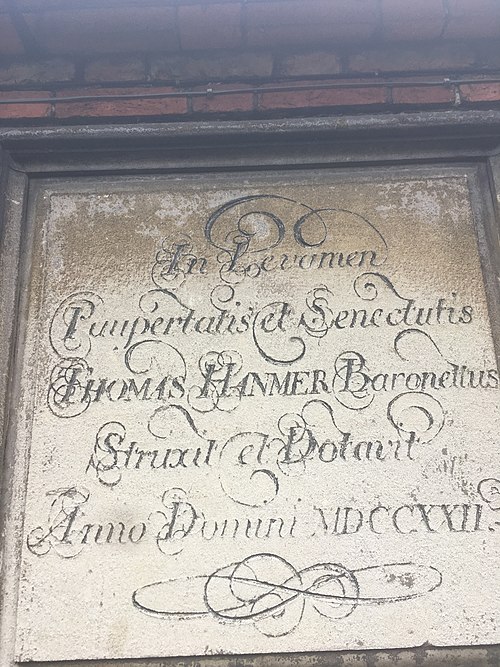 In Levamen
Paupertatis et Senectutis
THOMAS HANMER Baronettus
Struxit et Dotavit
Anno Domini MDCCXXII